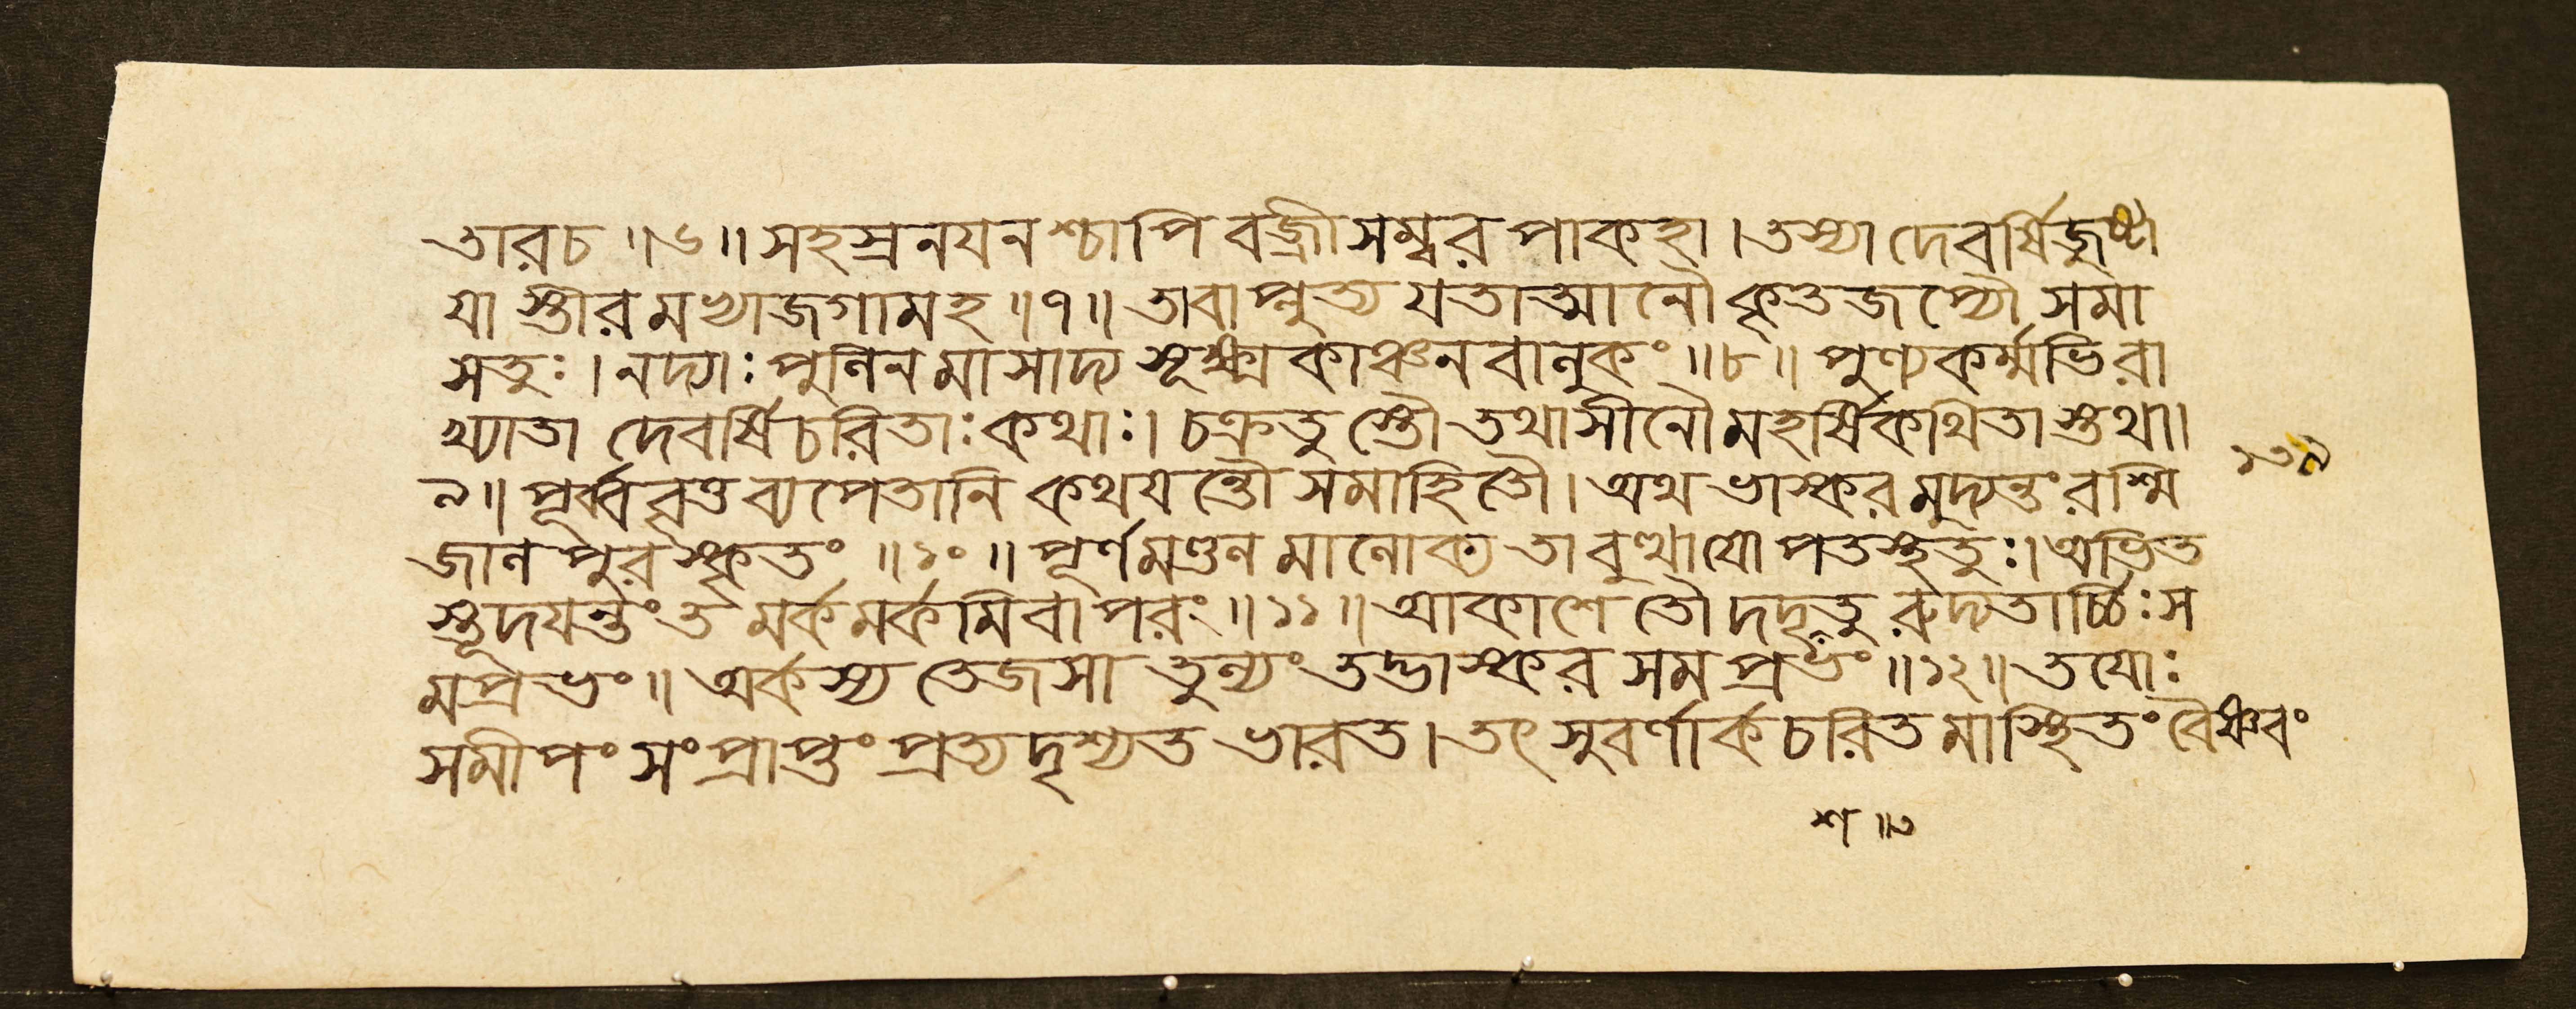 তারচ ॥৬॥ সহস্রনযনশ্চাপি বজ্রীসম্বরপাকহা। তস্যা দেবর্ষিজুষ্টা
যাস্তীরমখাজগামহ ॥৭॥ তাবাপ্লুত্য যতাত্মানৌ কৃতজপ্যৌ সমা
সতুঃ। নদ্যাঃ পুলিনমাসাদ্য সূক্ষ্মকাঞ্চনবালুকং ॥৮॥ পুণ্যকর্ম্মাভিরা
খ্যাতা দেবর্ষিচরিতাঃ কথাঃ। চক্রতুস্তৌ তথাসীনৌ মহর্ষিকথিতাস্তথা॥
৯॥ পূর্ব্ববৃত্তব্যপেতানি কথযন্তৌ সমাহিতৌ। অথ ভাস্করমুদ্যন্তং রশ্মি
জাল পুরস্কৃতং ॥১০॥ পূর্ণমণ্ডলমালোক্য তাবুত্থাযোপতস্থতুঃ। অভিত
স্তূদযন্তং তমর্কমর্কমিবাপরং ॥১১॥ আকাশে তৌ দদৃশতু রুদ্যতার্চ্চিঃস
মপ্রভং॥ অর্কস্য তেজসা তুল্যং তদ্ভাস্করসমপ্রভং ॥১২॥ তযোঃ
সমীপং সংপ্রাপ্তং প্রত্যদৃশ্যত ভারত। তৎ সুবর্ণার্কচরিতমাস্থিতং বৈষ্ণবং
১৩৯
শ ॥৩